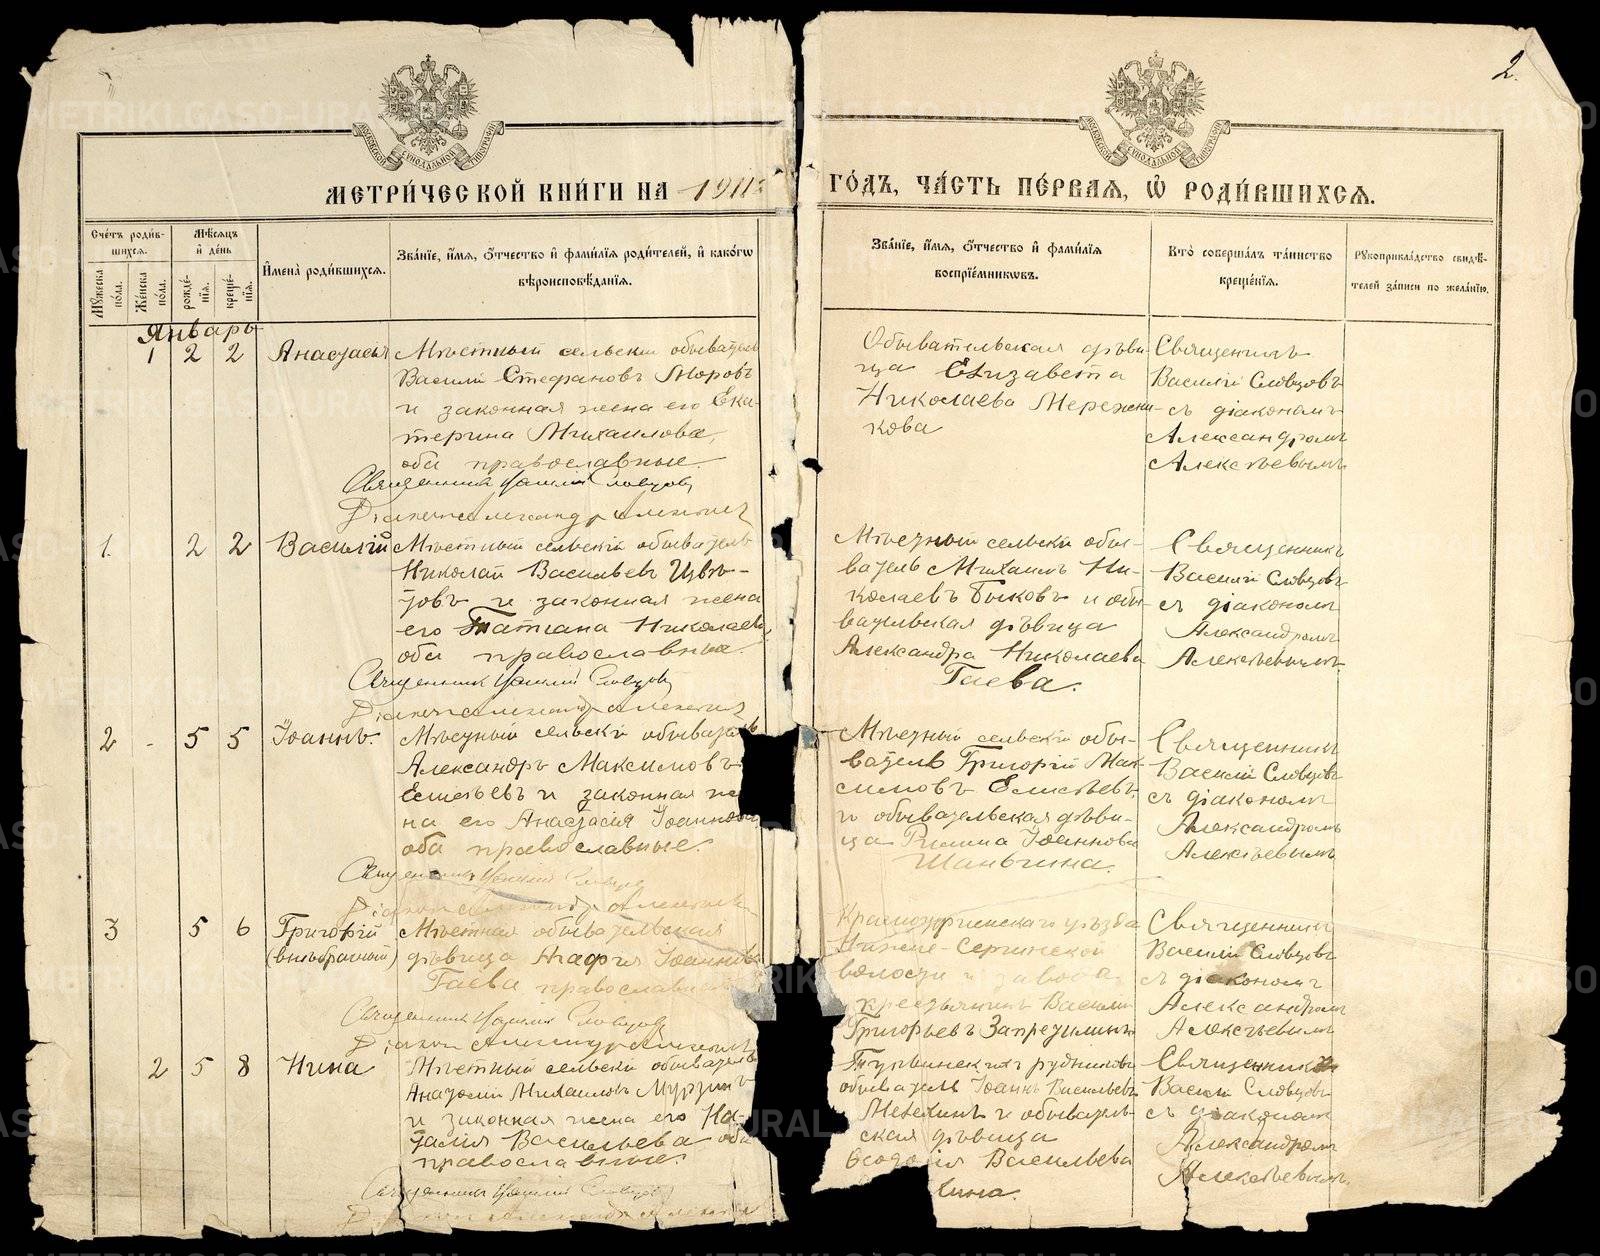 2.
МЕТРИ́ЧЕСКОЙ КНИ́ГИ НА 1911
ГО́ДЪ, ЧА́СТЬ ПЕ́РВАЯ, Ѡ҆ РОДИ́ВШИХСЯ.
Сче́тъ роди́в-
шихся.
Мꙋ́жеска по́ла.
Же́нска по́ла.
Мѣ́сяцъ
и҆ де́нь
рожде́-
нїѧ.
креще́-
нїѧ.
И҆мена̀ роди́вшихсѧ.
Зва́нїе, и҆́мѧ, ѻ҆́тчество и҆ фами́лїѧ роди́телей, и҆ како́гѡ
вѣроисповѣ́данїѧ.
Зва́нїе, и҆́мѧ, ѻ҆́тчество и҆ фами́лїѧ
воспрїе́мникѡвъ.
Кто̀ соверша́лъ та́инство
креще́нїѧ.
Рꙋкоприкла́дство свидѣ́-
телей за́писи по жела́нїю.
Январь
1 2 2
Анастасія
Мѣстный сельскій обыватель
Василій Стефановъ Моровъ
и законная жена его Ека-
терина Михаилова,
оба православные.
Священникъ Василій Словцовъ
Діаконъ Александръ Алексѣевъ
Обывательская дѣви-
ца Елизавета
Николаева Мережни-
кова
Священникъ
Василій Словцовъ
съ діакономъ
Александромъ
Алексѣевымъ
1. 2 2
Василій
Мѣстный сельскій обыватель
Николай Васильевъ Цвѣ-
товъ и законная жена
его Татіана Николаева,
оба православные.
Священникъ Василій Словцовъ
Діаконъ Александръ Алексѣевъ
Мѣстный сельскій обы-
ватель Михаилъ Ни-
колаевъ Быковъ и обы-
вательская дѣвица
Александра Николаева
Гаева.
Священникъ
Василій Словцовъ
съ діакономъ
Александромъ
Алексѣевымъ
2 - 5 5
Іоаннъ.
Мѣстный сельскій обыватель
Александръ Максимовъ
Елисѣевъ и законная же
на его Анастасія Іоаннова
оба православные.
Священникъ Василій Словцовъ
Діаконъ Александръ Алексѣевъ
Мѣстный сельскій обы-
ватель Григорій Мак-
симовъ Елисѣевъ
и обывательская дѣви-
ца Римма Іоаннова
Шаньгина.
Священникъ
Василій Словцовъ
съ діакономъ
Александромъ
Алексѣевымъ
3 5 6
Григорій
(внѣбрачный)
Мѣстная обывательская
дѣвица Агафія Іоаннова
Гаева православная
Священникъ Василій Словцовъ
Діаконъ Александръ Алексѣевъ
Красноуфимскаго уѣзда
Нижне-Сергинской
волости и завода
крестьянинъ Василій
Григорьевъ
Священникъ
Василій Словцовъ
съ діакономъ
Александромъ
Алексѣевымъ
2 5 8
Нина
Мѣстный сельскій обыватель
Анатолій Михаиловъ Мурзинъ
и законная жена его На-
талія Васильева оба
православные.
Священникъ Василій Словцовъ
Діаконъ Александръ Алексѣевъ
Турьинскихъ рудниковъ
обыватель Іоаннъ Васильевъ
и обыватель-
ская дѣвица
Ѳеодосія Васильева
Священникъ
Василій Словцовъ
съ діакономъ
Александромъ
Алексѣевымъ.